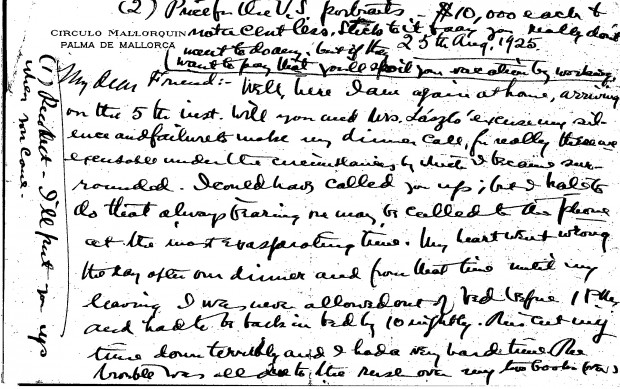 (2) Price for the U.S. portraits $10,000 each &
not a cent less. Stick to it & say you really don't
want to do any. but if they
want to pay that you'll spoil your vacation by working.
CIRCULO MALLORQUIN
PALMA DE MALLORCA
25th Aug. 1925.
(1) Recollect - I'll put you up
when you come -
My dear Friend:- Well, here I am again at home, arriving
on the 5th inst. Will you and Mrs. László excuse my sil-
ence and failure to make my dinner call, for really these are
excusable under the circumstances by which I became sur-
rounded. I could have called you up; but I hate to
do that always fearing one may be called to the phone
at the most exasperating time. My heart went wrong
the day after our dinner and from that time until my
leaving I was never allowed out of bed before 1 P.M.
and had to be back in bed by 10 nightly. This cut my
time down terribly and I had a very hard time. The
trouble was all due to the rush over my two books (over)